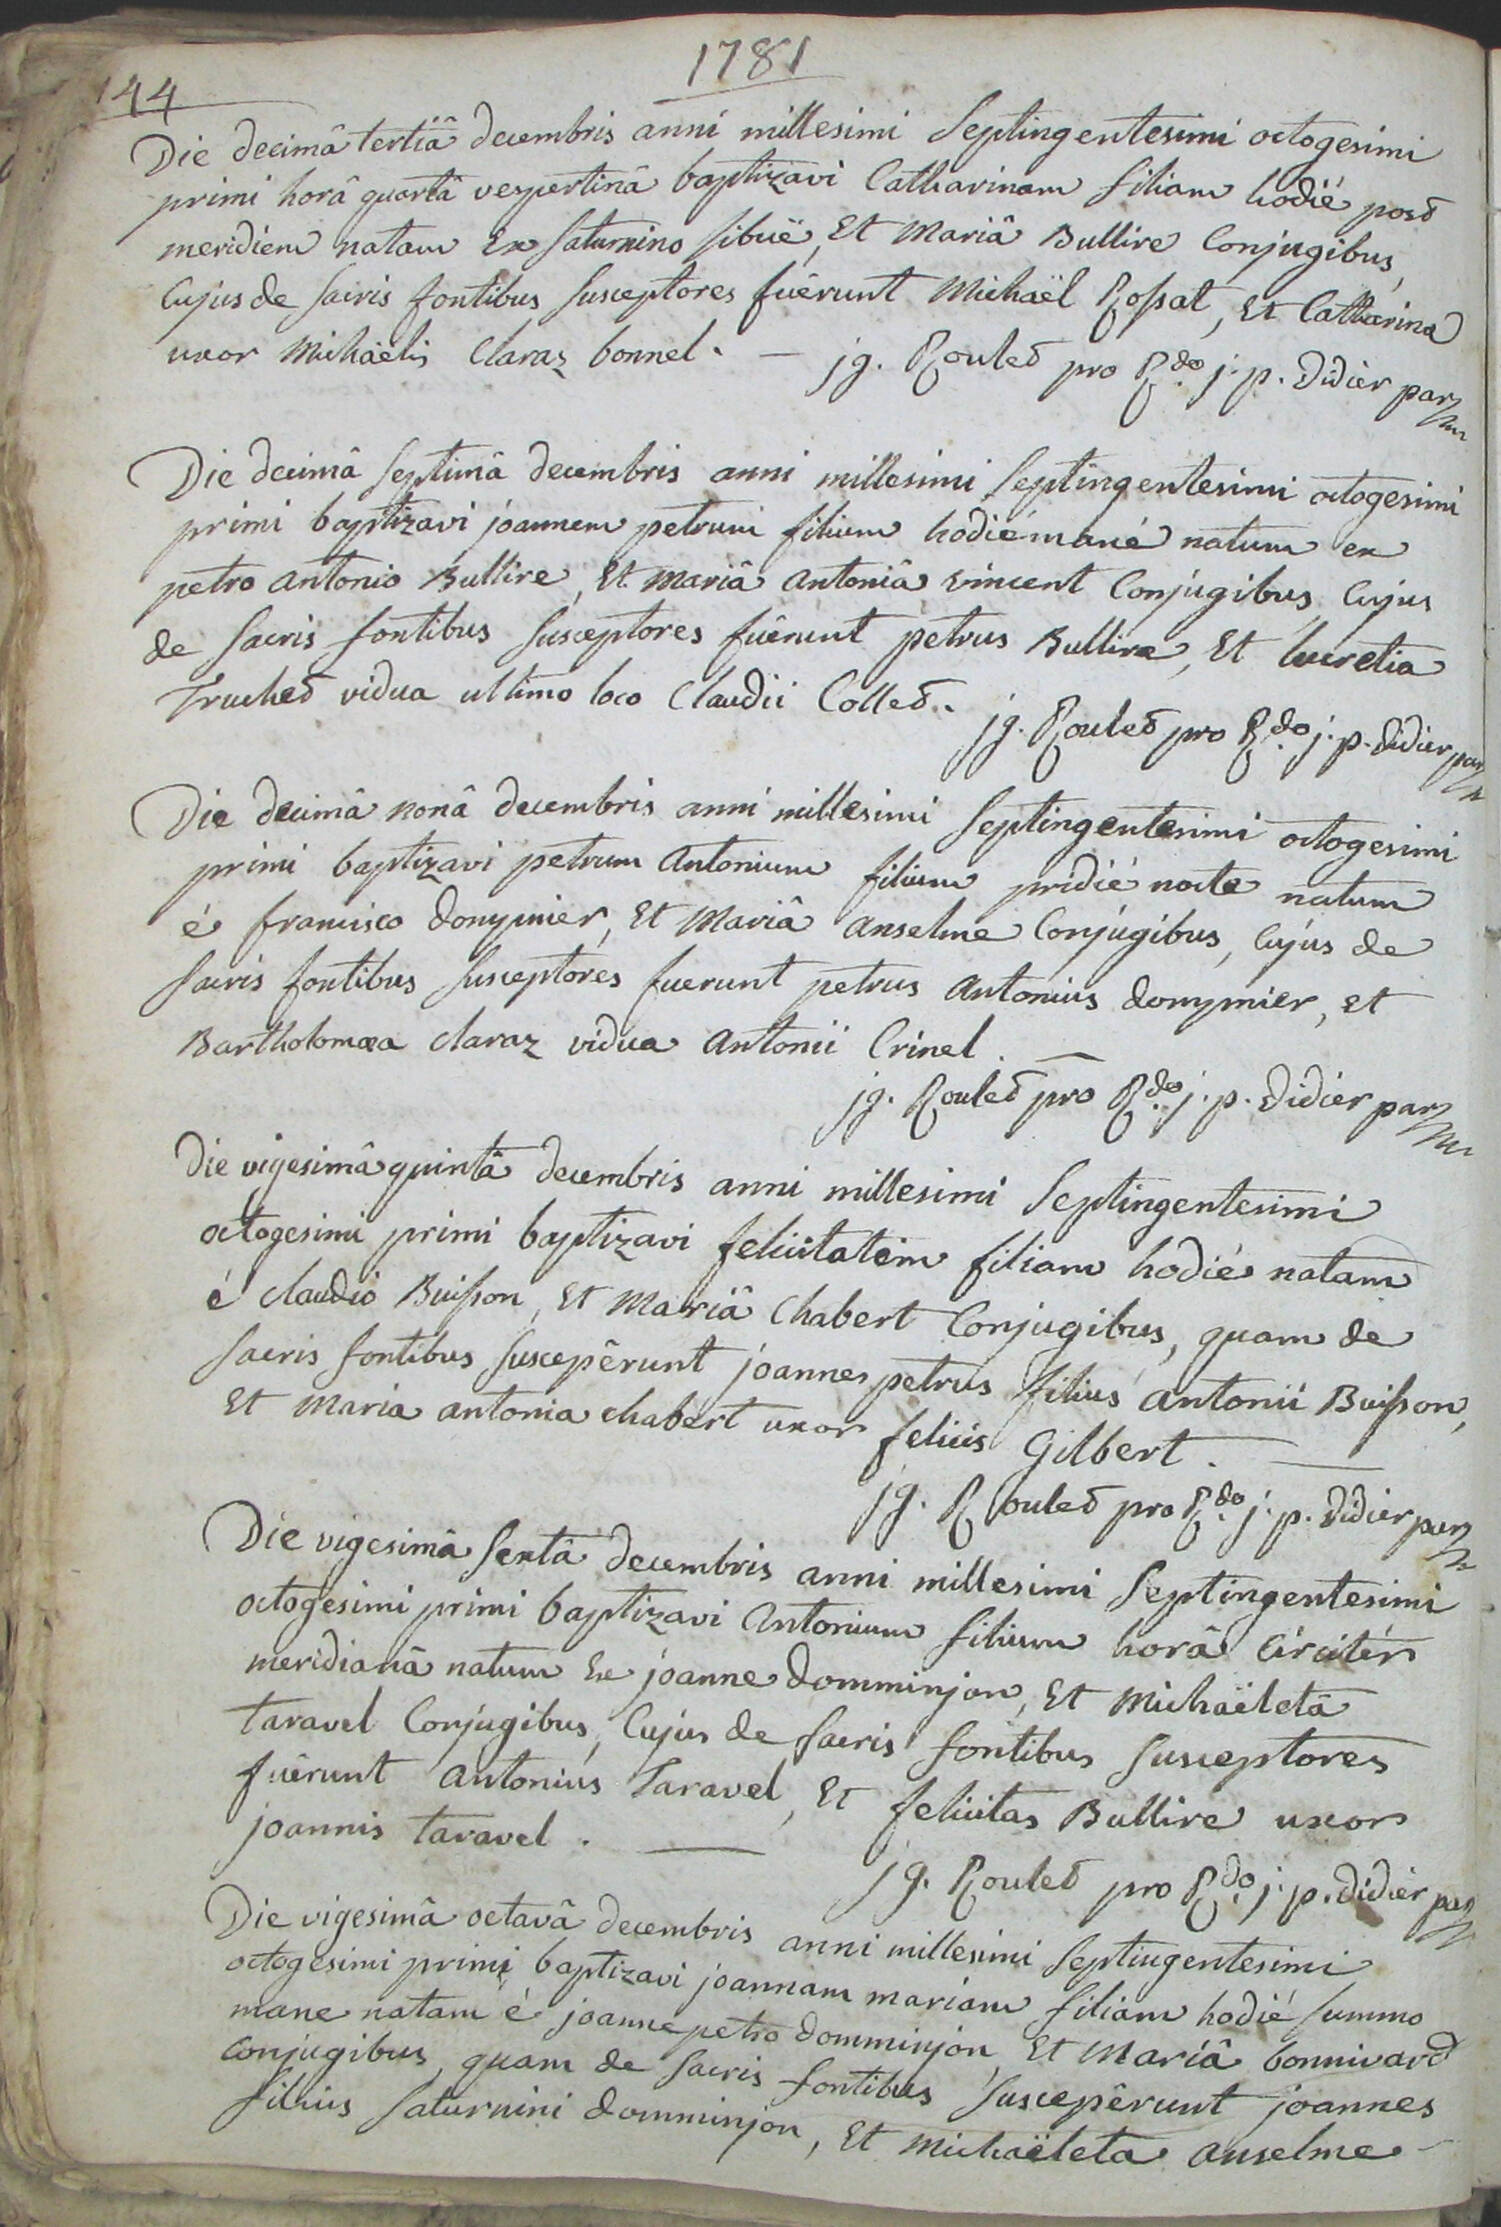 1781
144
Die decimâ tertiâ decembris anni millesimi Septingentesimi octogesimi
primi horâ quartâ vespertinâ baptizavi Catharinam filiam hodiè post
meridiem natam Ex Saturnino sibuë, Et Mariâ Bullire Conjugibus,
Cujus de sacris fontibus susceptores fuêrunt Michaël Rossat, Et Catharina
uxor Michaëlis Claraz bonnel. — jg. Roulet pro Rdo. j. p. Didier par
Die decimâ septimâ decembris anni millesimi Septingentesimi octogesimi
primi baptizavi joannem petrum filium hodiè manè natum ex
petro antonio Bullire, Et mariâ antoniâ vincent Conjugibus, Cujus
de sacris fontibus susceptores fuêrunt petrus Bullire, Et lucretia
Truchet vidua ultimo loco Claudii Collet. jg. Roulet pro Rdo. j. p. Didier par
Die decimâ nonâ decembris anni millesimi Septingentesimi octogesimi
primi baptizavi petrum Antonium filium pridiè nocte natum
é francisco donymier, Et Mariâ Anselme Conjugibus, Cujus de
sacris fontibus susceptores fuerunt petrus Antonius donymier, et
Bartholomæa claraz vidua Antonii Crinel. —
jg. Roulet pro Rdo. j. p. Didier par
Die vigesimâ quintâ decembris anni millesimi Septingentesimi
octogesimi primi baptizavi felicitatem filiam hodiè natam
é claudio Buisson, Et Mariâ Chabert Conjugibus, quam de
sacris fontibus suscepêrunt joannes petrus filius antonii Buisson,
Et Maria antonia chabert uxor felicis Gilbert. —
jg. Roulet pro Rdo. j. p. Didier par
Die vigesimâ sextâ decembris anni millesimi Septingentesimi
octogesimi primi baptizavi Antonium filium horâ circitèr
meridianâ natum Ex joanne domminjon, Et Michaëletâ
taravel Conjugibus, Cujus de sacris fontibus susceptores
fuêrunt antonius Taravel, Et felicitas Bullire uxor
joannis taravel. —
jg. Roulet pro Rdo. j. p. Didier par
Die vigesimâ octavâ decembris anni millesimi septingentesimi
octogesimi primi baptizavi joannam mariam filiam hodiè summo
mane natam é joanne petro domminjon, Et Mariâ bonnivard
conjugibus, quam de sacris fontibus suscepêrunt joannes
filius Saturnini domminjon, Et Michaëleta anselme